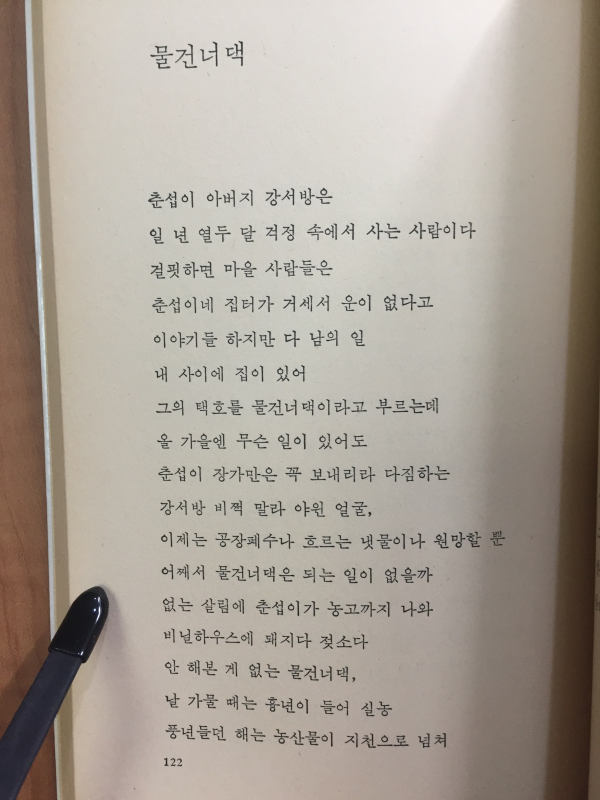 물건너댁
춘섭이 아버지 강서방은
일 년 열두 달 걱정 속에서 사는 사람이다
걸핏하면 마을 사람들은
춘섭이네 집터가 거세서 운이 없다고
이야기들 하지만 다 남의 일
내 사이에 집이 있어
그의 택호를 물건너댁이라고 부르는데
올 가을엔 무슨 일이 있어도
춘섭이 장가만은 꼭 보내리라 다짐하는
강서방 비쩍 말라 야윈 얼굴,
이제는 공장폐수나 흐르는 냇물이나 원망할 뿐
어째서 물건너댁은 되는 일이 없을까
없는 살림에 춘섭이가 농고까지 나와
비닐하우스에 돼지다 젖소다
안 해본 게 없는 물건너댁,
날 가물 때는 흉년이 들어 실농
풍년들던 해는 농산물이 지천으로 넘쳐
122